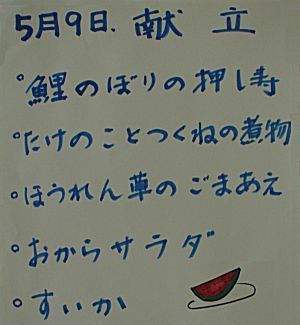 5月9日. 献立
°鯉のぼりの押し寿
°たけのことつくねの煮物
°ほうれん草のごまあえ
°おからサラダ
°すいか